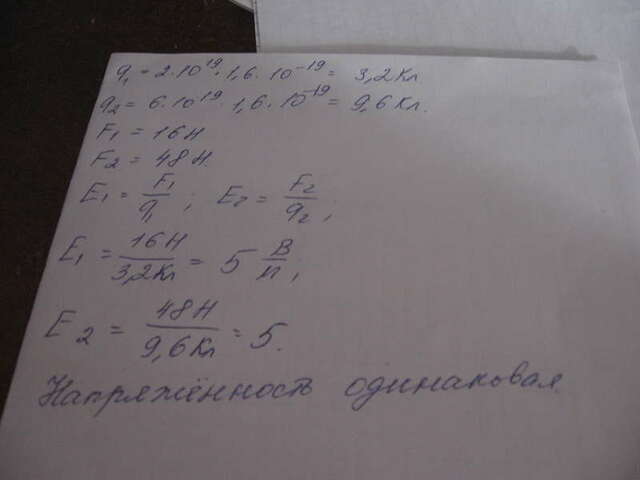 q₁ = 2·10¹⁹·1,6·10⁻¹⁹ = 3,2Кл
q₂ = 6·10¹⁹ 1,6·10⁻¹⁹ = 9,6Кл.
F₁ = 16Н
F₂ = 48Н.
E₁ = F₁/q₁ ; E₂ = F₂/q₂ ;
E₁ = 16Н/3,2Кл = 5 В/м ;
E₂ = 48Н/9,6Кл = 5.
Напряжённость одинаковая.